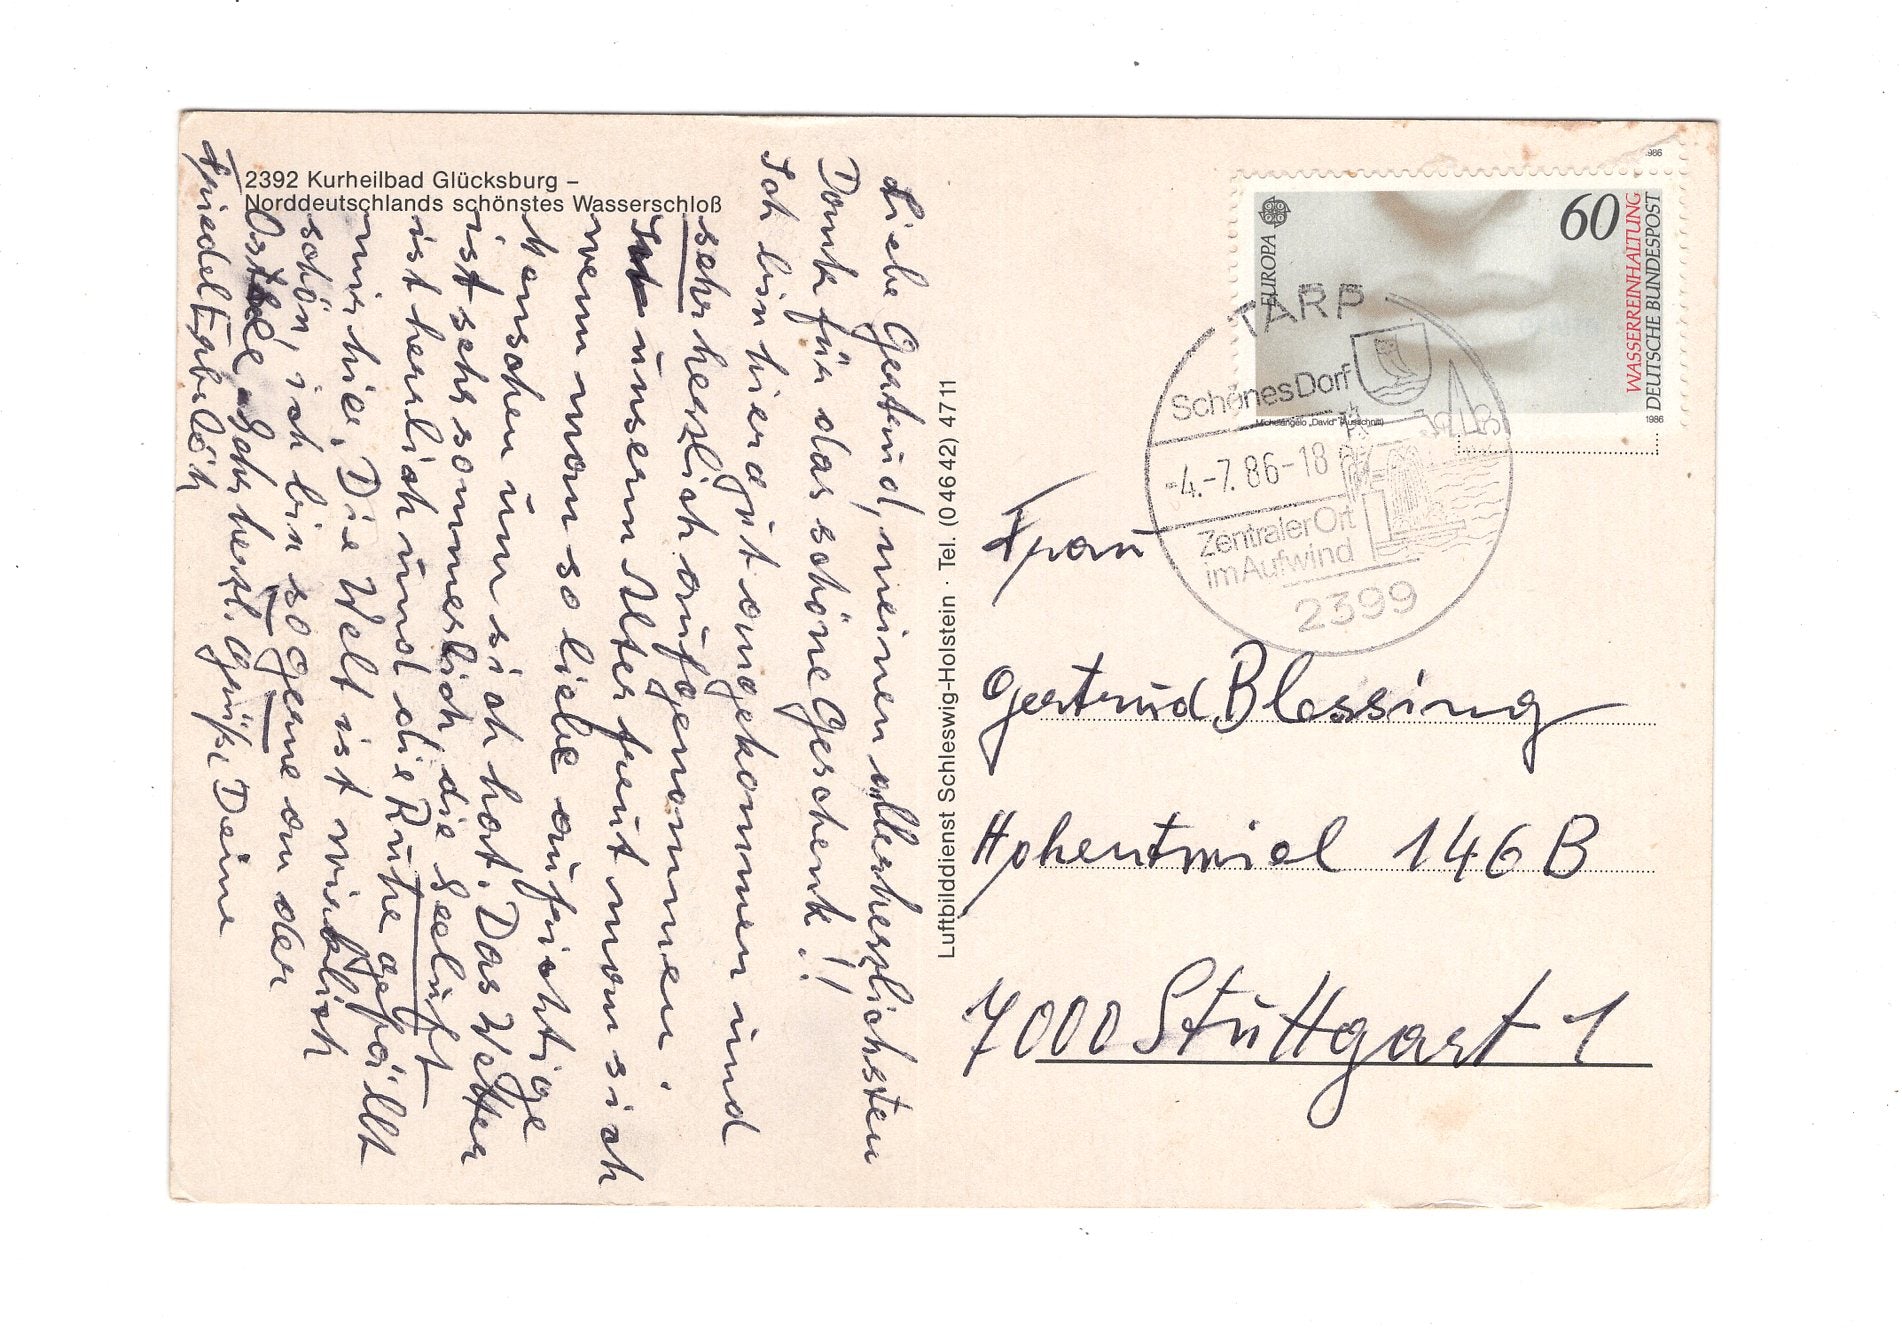 2392 Kurheilbad Glücksburg –
Norddeutschlands schönstes Wasserschloß
Liebe Gertrud, meinen allerherzlichsten
Dank für das schöne Geschenk!!
Ich bin hier gut angekommen und
sehr herzlich aufgenommen.
In unserm Alter freut man sich
wenn man so liebe aufrichtige
Menschen um sich hat. Das Wetter
ist sehr sommerlich die Seeluft
ist herrlich und die Ruhe gefällt
mir hier. Die Welt ist wirklich
schön, ich bin so gerne an der
Ostsee. Sehr herzl. Grüße Deine
Friedel
Luftbilddienst Schleswig-Holstein · Tel. (0 46 42) 47 11
1986
60
EUROPA
WASSERREINHALTUNG
DEUTSCHE BUNDESPOST
Michelangelo „David" (Ausschnitt)
1986
TARP
Schönes Dorf
-4.-7.86-18
Zentraler Ort
im Aufwind
2399
Frau
Gertrud Blessing
Hohentwiel 146 B
7000 Stuttgart 1